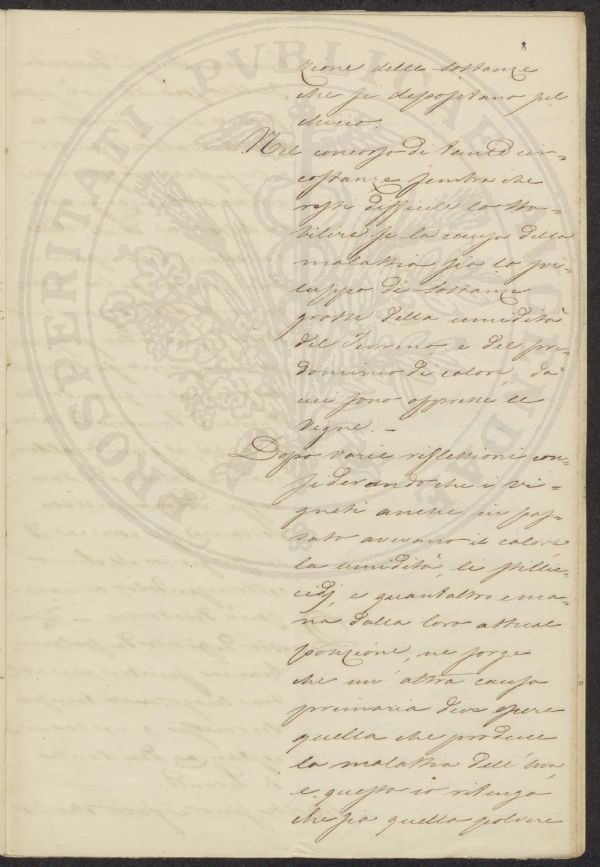 8
zione delle sostanze
che si depositano sul
chicco.
Nel concorso di tante cir=
costanze sembra che
resti difficile lo sta=
bilire se la causa della
malattia sia lo svi=
luppo di sostanze
grasse della umidità
del Terreno e del pre=
dominio di calori, da
cui sono oppresse le
vigne. –
Dopo varie riflessioni con=
siderando che i vi=
gneti anche in pas=
sato avevano il calore
la umidità, li stilli=
cidj, e quant'altro ema=
na dalla loro attual
posizione, ne sorge
che un'altra causa
primaria deve essere
quella che produce
la malattia dell'uva
e questa io ritengo
che sia quella polvere
PROSPERITATI PVBLICAE AVGENDAE